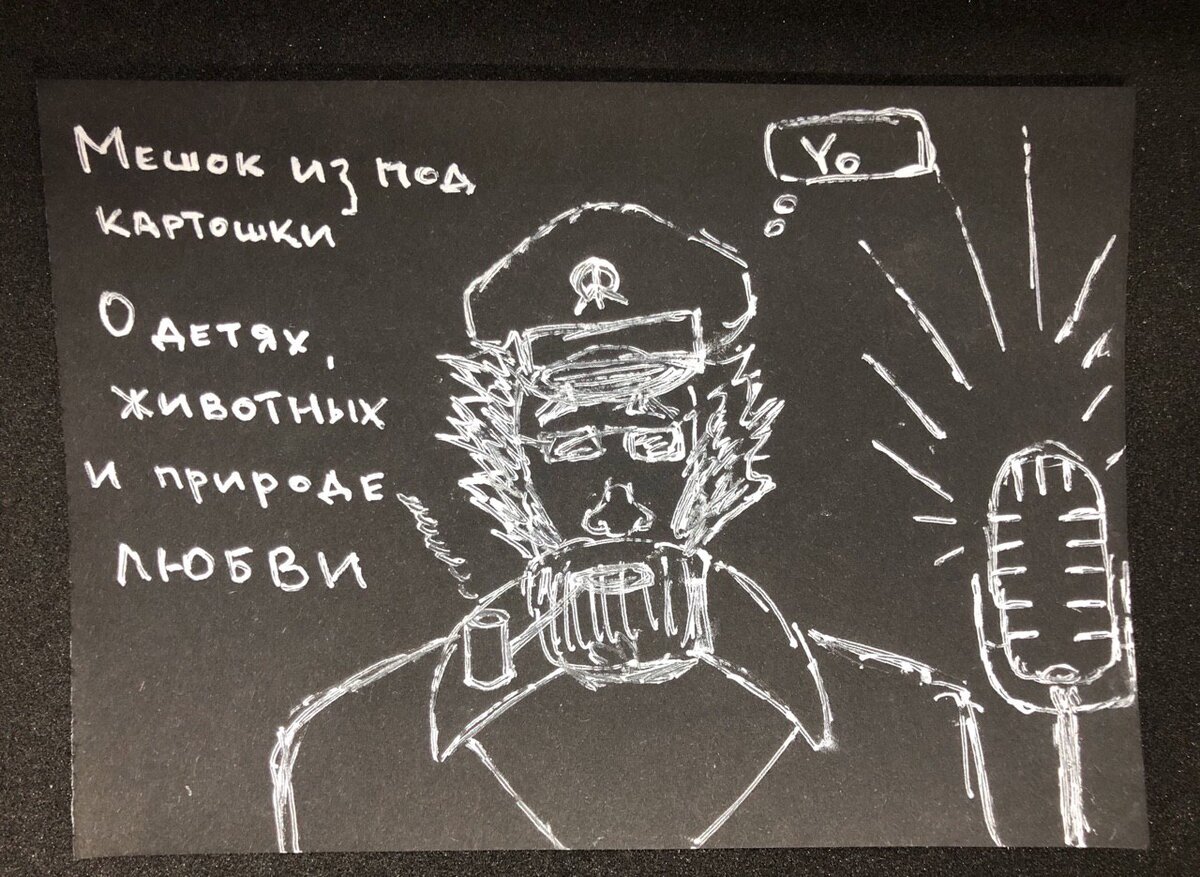 Мешок из под
картошки
О детях,
животных
и природе
любви
Yo